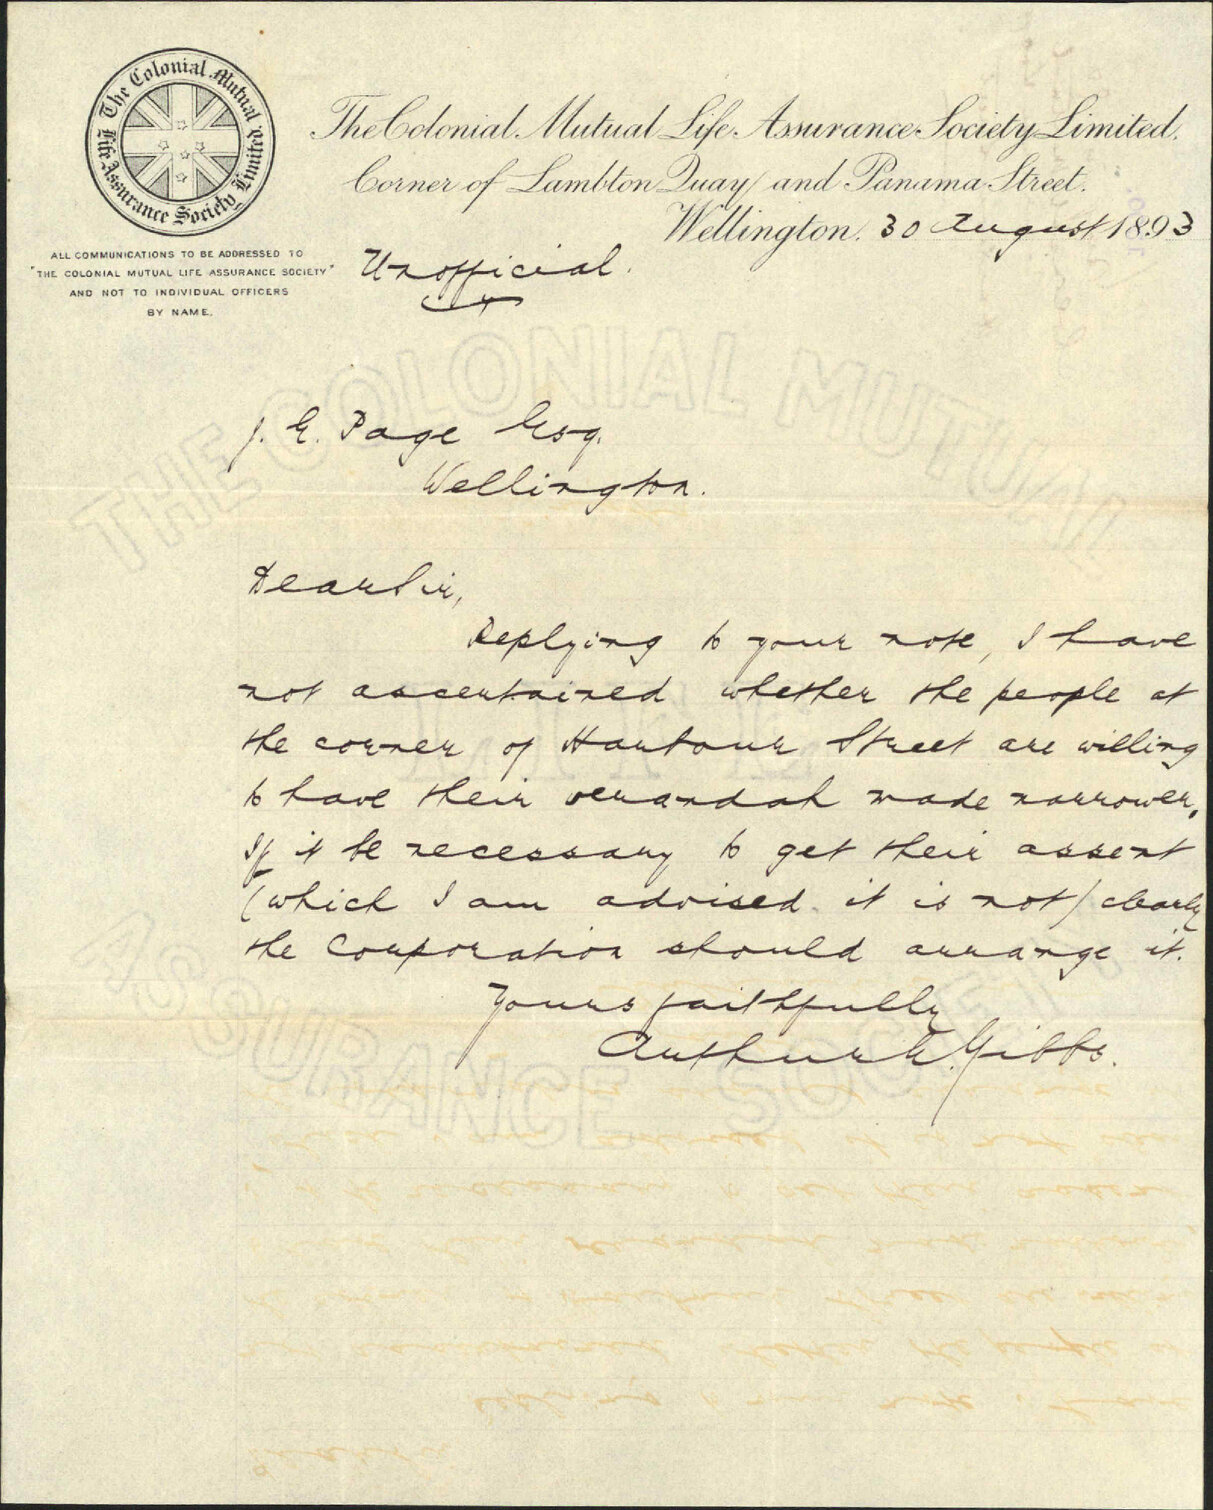 The Colonial Mutual Life Assurance Society Limited
The Colonial Mutual Life Assurance Society Limited.
Corner of Lambton Quay and Panama Street.
Wellington. 30 August 1893
ALL COMMUNICATIONS TO BE ADDRESSED TO
"THE COLONIAL MUTUAL LIFE ASSURANCE SOCIETY"
AND NOT TO INDIVIDUAL OFFICERS
BY NAME.
Unofficial.
THE COLONIAL MUTUAL
LIFE
ASSURANCE SOCIETY
J. E. Page Esq.
Wellington.
Dear Sir,
Replying to your note, I have
not ascertained whether the people at
the corner of Harbour Street are willing
to have their verandah made narrower.
If it be necessary to get their assent
(which I am advised it is not) clearly
the Corporation should arrange it.
Yours faithfully
Arthur E. Gibbs.